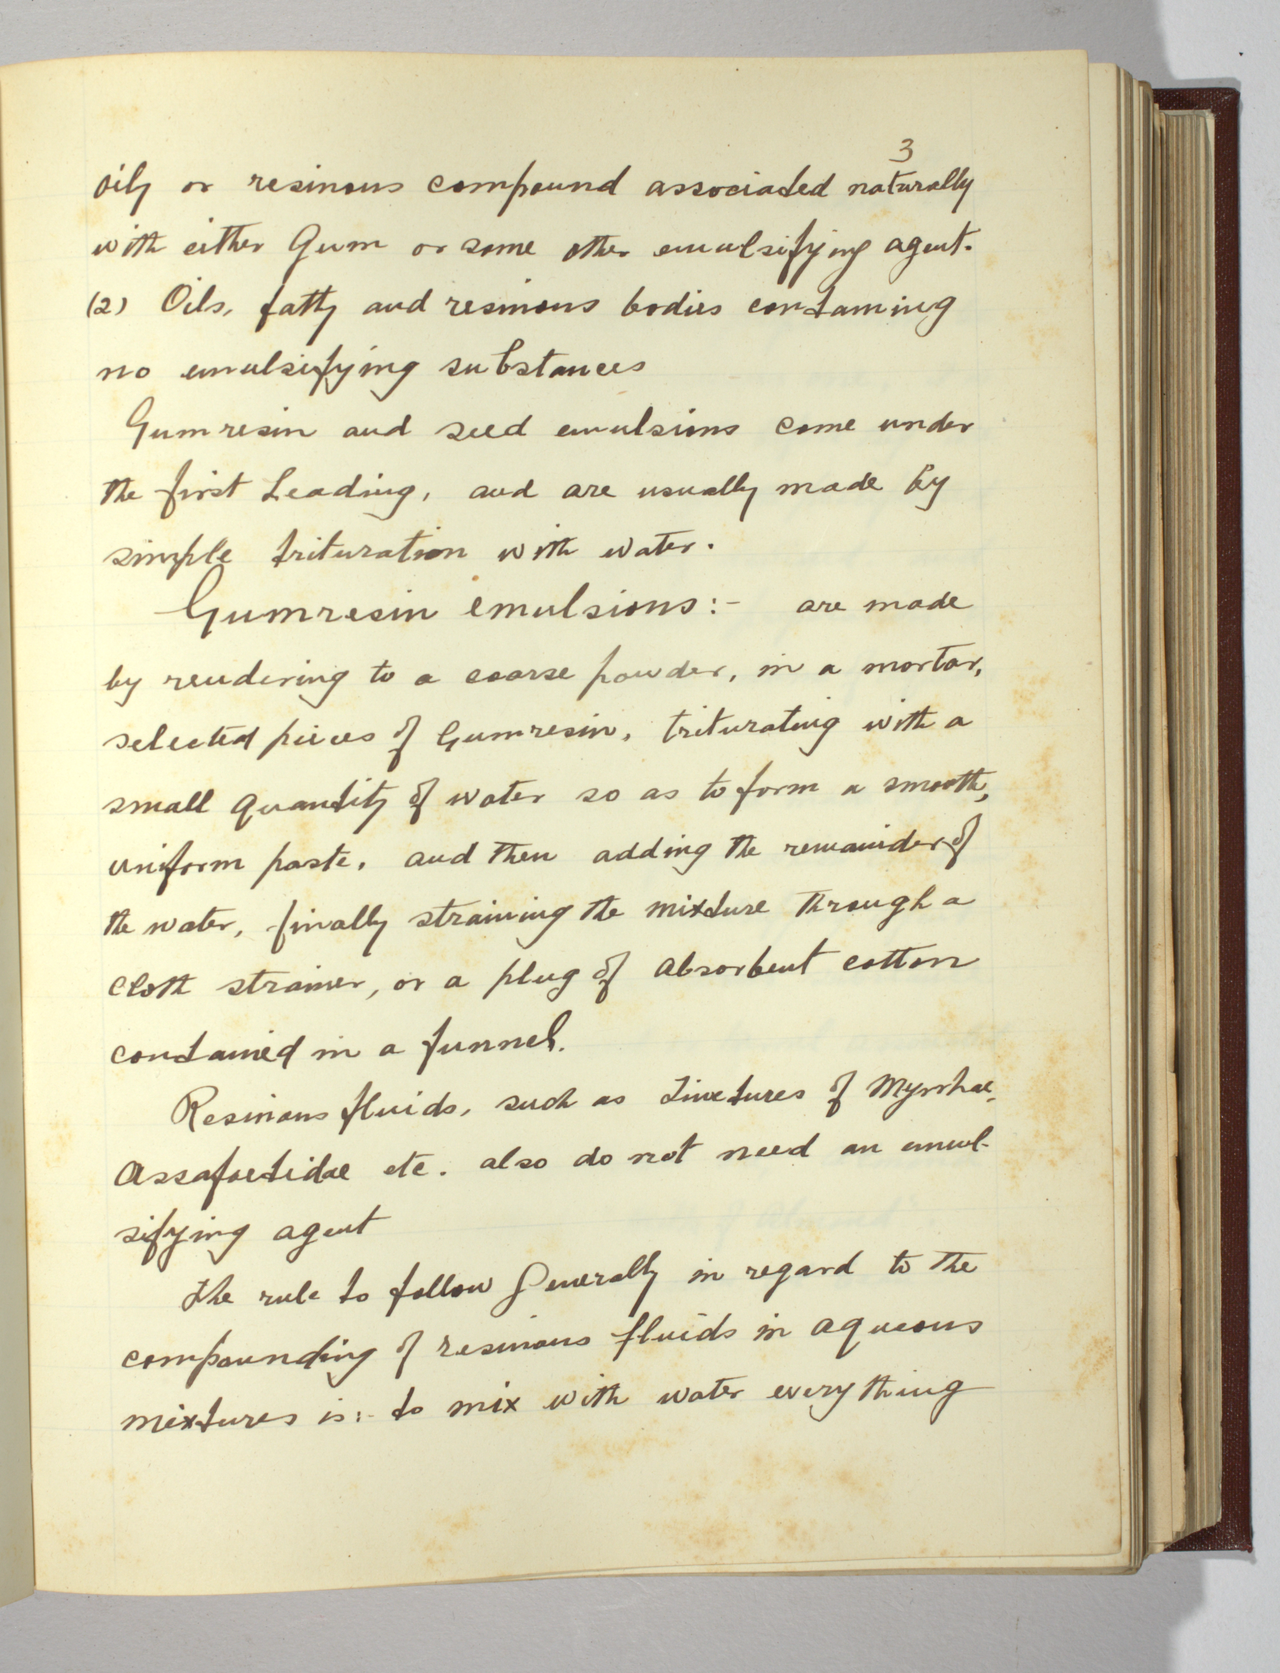 3
oily or resinous compound associated naturally
with either Gum or some other emulsifying agent.
(2) Oils, fatty and resinous bodies containing
no emulsifying substances
Gumresin and seed emulsions come under
the first heading, and are usually made by
simple trituration with water.
Gumresin emulsions:- are made
by rendering to a coarse powder, in a mortar,
selected pieces of Gumresin, triturating with a
small quantity of water so as to form a smooth,
uniform paste, and then adding the remainder of
the water, finally straining the mixture through a
cloth strainer, or a plug of absorbent cotton
contained in a funnel.
Resinous fluids, such as Tinctures of Myrrhae,
Assafoetidae etc. also do not need an emul-
sifying agent
The rule to follow generally in regard to the
compounding of resinous fluids in aqueous
mixtures is:- to mix with water everything